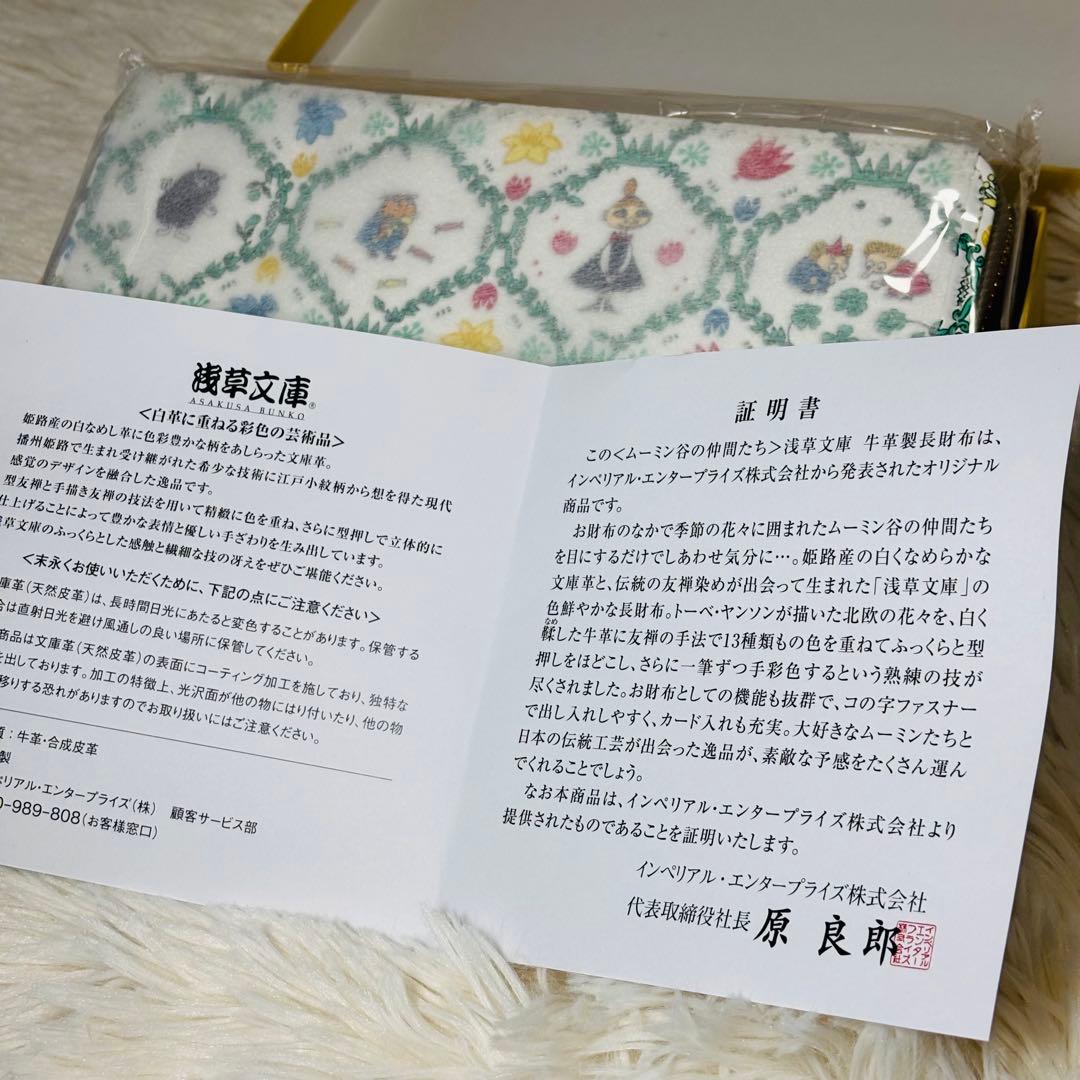 浅草文庫®
ASAKUSA BUNKO
<白革に重ねる彩色の芸術品>
姫路産の白なめし革に色彩豊かな柄をあしらった文庫革。
播州姫路で生まれ受け継がれた希少な技術に江戸小紋柄から想を得た現代
感覚のデザインを融合した逸品です。
型友禅と手描き友禅の技法を用いて精緻に色を重ね、さらに型押しで立体的に
仕上げることによって豊かな表情と優しい手ざわりを生み出しています。
草文庫のふっくらとした感触と繊細な技の冴えをぜひご堪能ください。
<末永くお使いいただくために、下記の点にご注意ください>
庫革(天然皮革)は、長時間日光にあたると変色することがあります。保管する
合は直射日光を避け風通しの良い場所に保管してください。
商品は文庫革(天然皮革)の表面にコーティング加工を施しており、独特な
を出しております。加工の特徴上、光沢面が他の物にはり付いたり、他の物
移りする恐れがありますのでお取り扱いにはご注意ください。
質:牛革・合成皮革
製
ペリアル・エンタープライズ(株) 顧客サービス部
0-989-808(お客様窓口)
証明書
この<ムーミン谷の仲間たち>浅草文庫 牛革製長財布は、
インペリアル・エンタープライズ株式会社から発表されたオリジナル
商品です。
お財布のなかで季節の花々に囲まれたムーミン谷の仲間たち
を目にするだけでしあわせ気分に…。姫路産の白くなめらかな
文庫革と、伝統の友禅染めが出会って生まれた「浅草文庫」の
色鮮やかな長財布。トーベ・ヤンソンが描いた北欧の花々を、白く
鞣した牛革に友禅の手法で13種類もの色を重ねてふっくらと型
押しをほどこし、さらに一筆ずつ手彩色するという熟練の技が
尽くされました。お財布としての機能も抜群で、コの字ファスナー
で出し入れしやすく、カード入れも充実。大好きなムーミンたちと
日本の伝統工芸が出会った逸品が、素敵な予感をたくさん運ん
でくれることでしょう。
なお本商品は、インペリアル・エンタープライズ株式会社より
提供されたものであることを証明いたします。
インペリアル・エンタープライズ株式会社
代表取締役社長 原 良郎